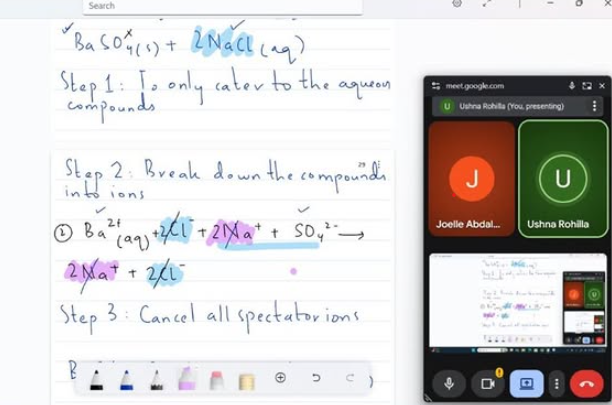 Search
BaSO₄(s) + 2NaCl(aq)
Step 1: To only cater to the aqueous
compounds
Step 2: Break down the compounds
into ions
② Ba²⁺(aq) + 2Cl⁻ + 2Na⁺ + SO₄²⁻ →
2Na⁺ + 2Cl⁻
Step 3: Cancel all spectator ions
B
meet.google.com
U Ushna Rohilla (You, presenting)
J
U
Joelle Abdal...
Ushna Rohilla